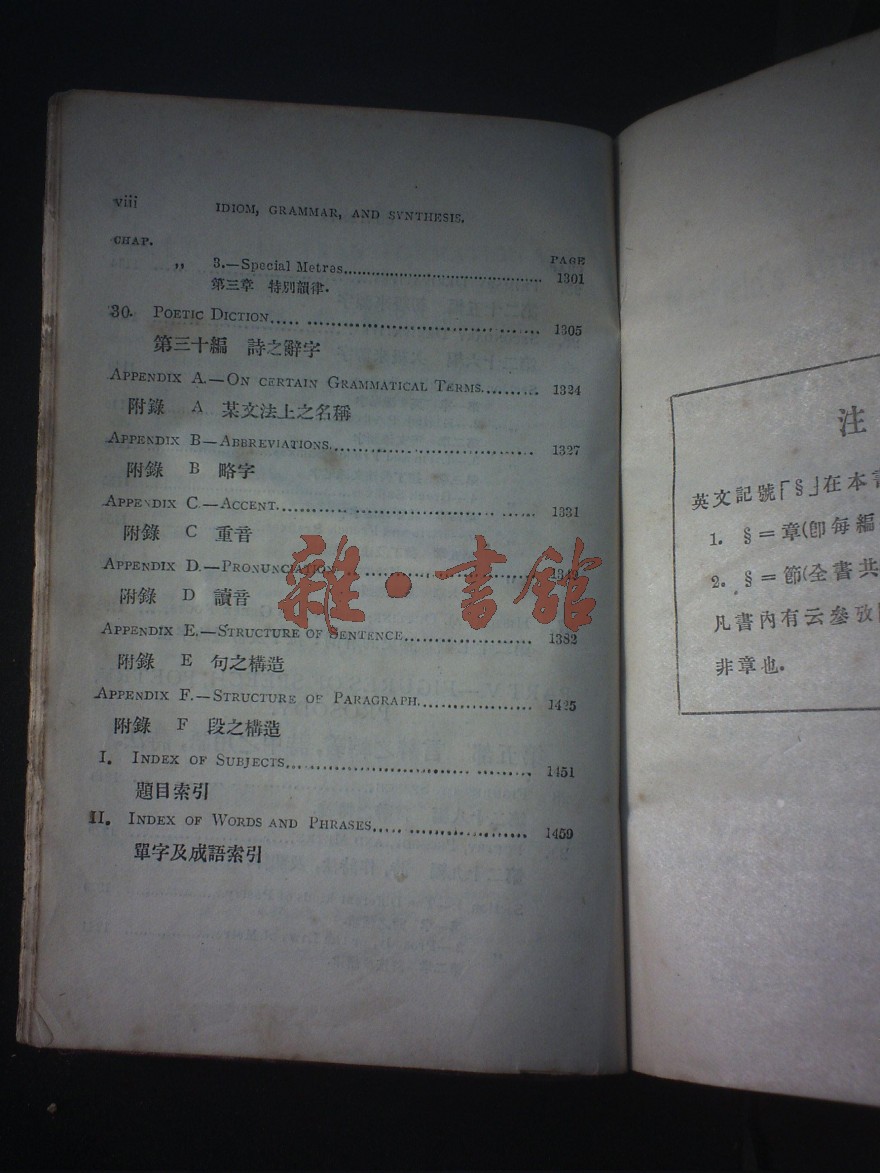 viii IDIOM, GRAMMAR, AND SYNTHESIS.
CHAP. PAGE
„ 3.—Special Metres 1301
第三章 特別韻律.
30. POETIC DICTION 1305
第三十編 詩之辭字
APPENDIX A.—ON CERTAIN GRAMMATICAL TERMS 1324
附錄 A 某文法上之名稱
APPENDIX B—ABBREVIATIONS 1327
附錄 B 略字
APPENDIX C—ACCENT 1331
附錄 C 重音
APPENDIX D.—PRONUNCIATION
附錄 D 讀音
APPENDIX E.—STRUCTURE OF SENTENCE 1382
附錄 E 句之構造
APPENDIX F.—STRUCTURE OF PARAGRAPH 1425
附錄 F 段之構造
I. INDEX OF SUBJECTS 1451
題目索引
II. INDEX OF WORDS AND PHRASES 1459
單字及成語索引
雜·書館
注
英文記號「§」在本書
1. §=章(卽每編
2. §=節(全書共
凡書內有云參攷
非章也.